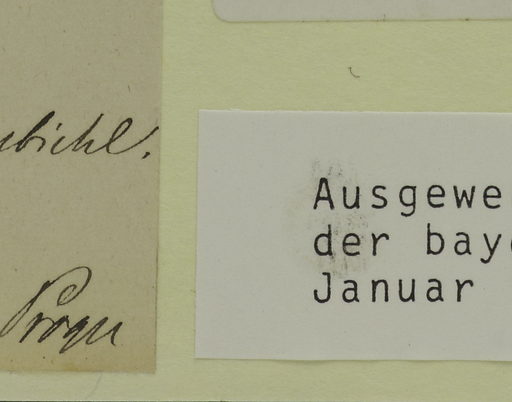 bichl.
Progel
Ausgewe
der baye
Januar